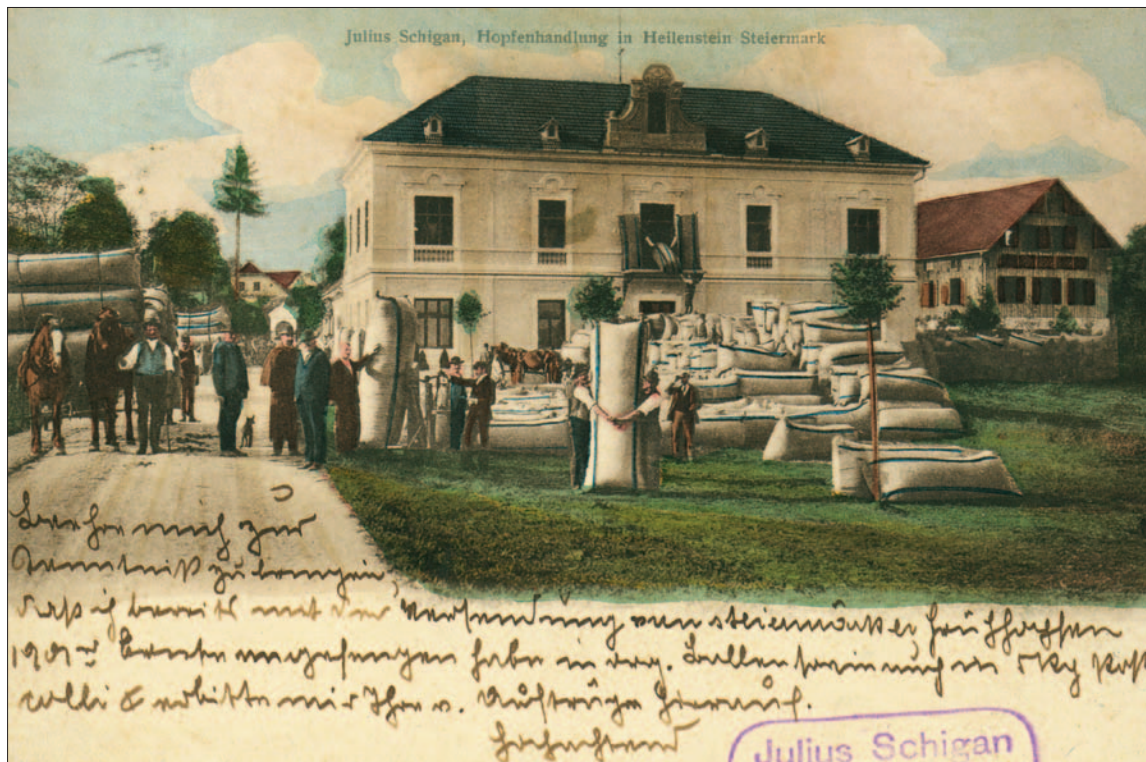 Julius Schigan, Hopfenhandlung in Heilenstein Steiermark
Beehre mich zur
Kenntniß zu bringen,
daß ich bereits mit der Versendung von steiermärker Frühhopfen
1901er Ernte angefangen habe in org. Ballen sowie auch in 5 Kg Post
colli & erbitte mir Ihre w. Aufträge hierauf.
Hochachtend
Julius Schigan